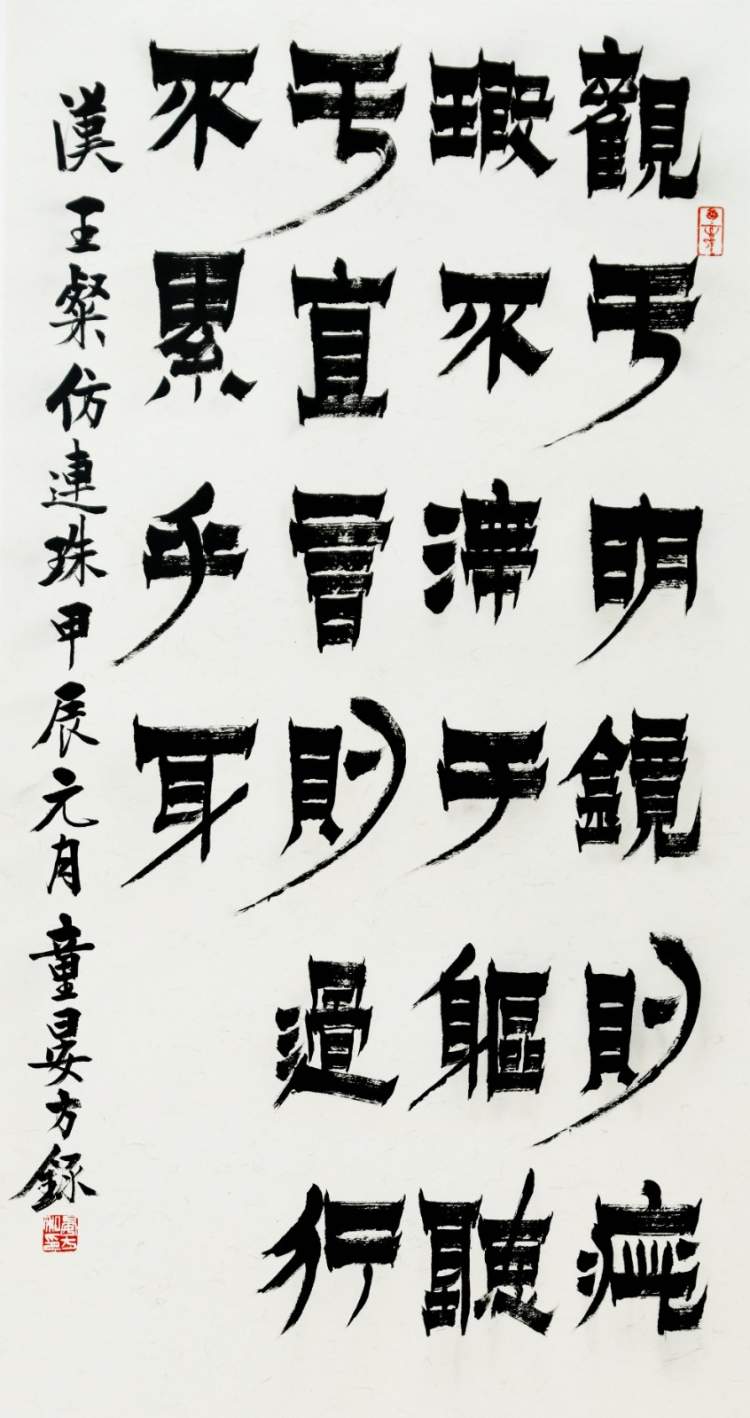 觀于明鏡則疵
瑕不滯于軀聽
于直言則過行
不累乎身
漢王粲仿連珠甲辰元月童晏方録